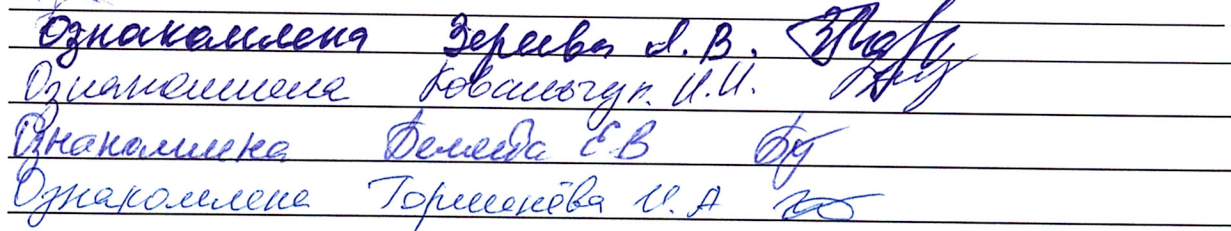 Ознакомлена Зерева А. В.
Ознакомлена Ковальчук И.И.
Ознакомлена Беляева Е.В
Ознакомлена Горшенёва И.А